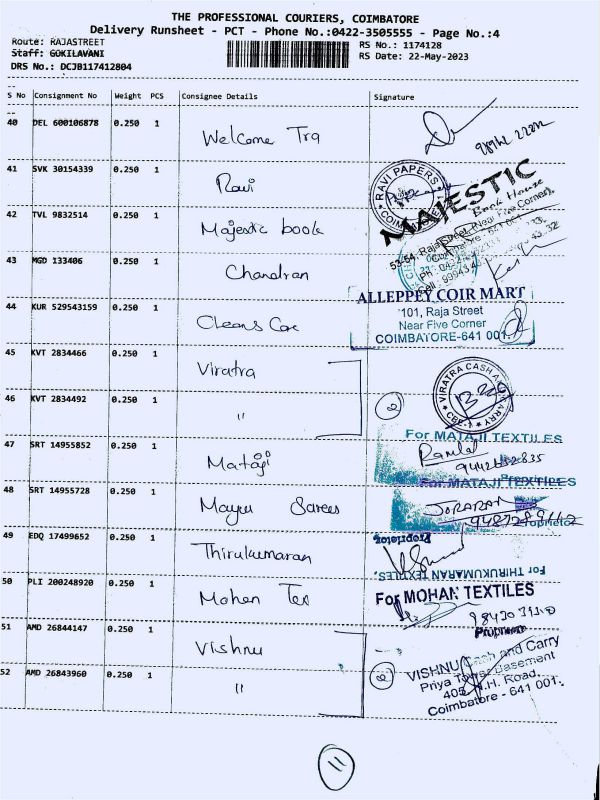 THE PROFESSIONAL COURIERS, COIMBATORE
Delivery Runsheet - PCT - Phone No.:0422-3505555 - Page No.:4
Route: RAJASTREET
RS No.: 1174128
Staff: GOKILAVANI
RS Date: 22-May-2023
DRS No.: DCJB117412804
S No Consignment No Weight PCS Consignee Details Signature
40 DEL 600106878 0.250 1 Welcome Tra
41 SVK 30154339 0.250 1 Ravi
RAVI PAPERS
COIMBATORE
42 TVL 9832514 0.250 1 Majestic book
MAJESTIC
Book House
53-54, Raja Street (Near Five Corner),
Coimbatore - 641 001.
43 MGD 133406 0.250 1 Chandran
44 KUR 529543159 0.250 1 Cleans Care
ALLEPPEY COIR MART
101, Raja Street
Near Five Corner
COIMBATORE-641 001.
45 KVT 2834466 0.250 1 Viratra
46 KVT 2834492 0.250 1 "
2
VIRATRA CASH AND CARRY
CBE-1
47 SRT 14955852 0.250 1 Mataji
For MATAJI TEXTILES
48 SRT 14955728 0.250 1 Mayur Sarees
For MATAJI TEXTILES
Proprietor
49 EDQ 17499652 0.250 1 Thirukumaran
Proprietor
For THIRUKUMARAN TEXTILES,
50 PLI 200248920 0.250 1 Mohan Tex
For MOHAN TEXTILES
51 AMD 26844147 0.250 1 Vishnu
52 AMD 26843960 0.250 1 "
2
VISHNU Cash and Carry
Priya Tower Basement
405, N.H. Road,
Coimbatore - 641 001.
11